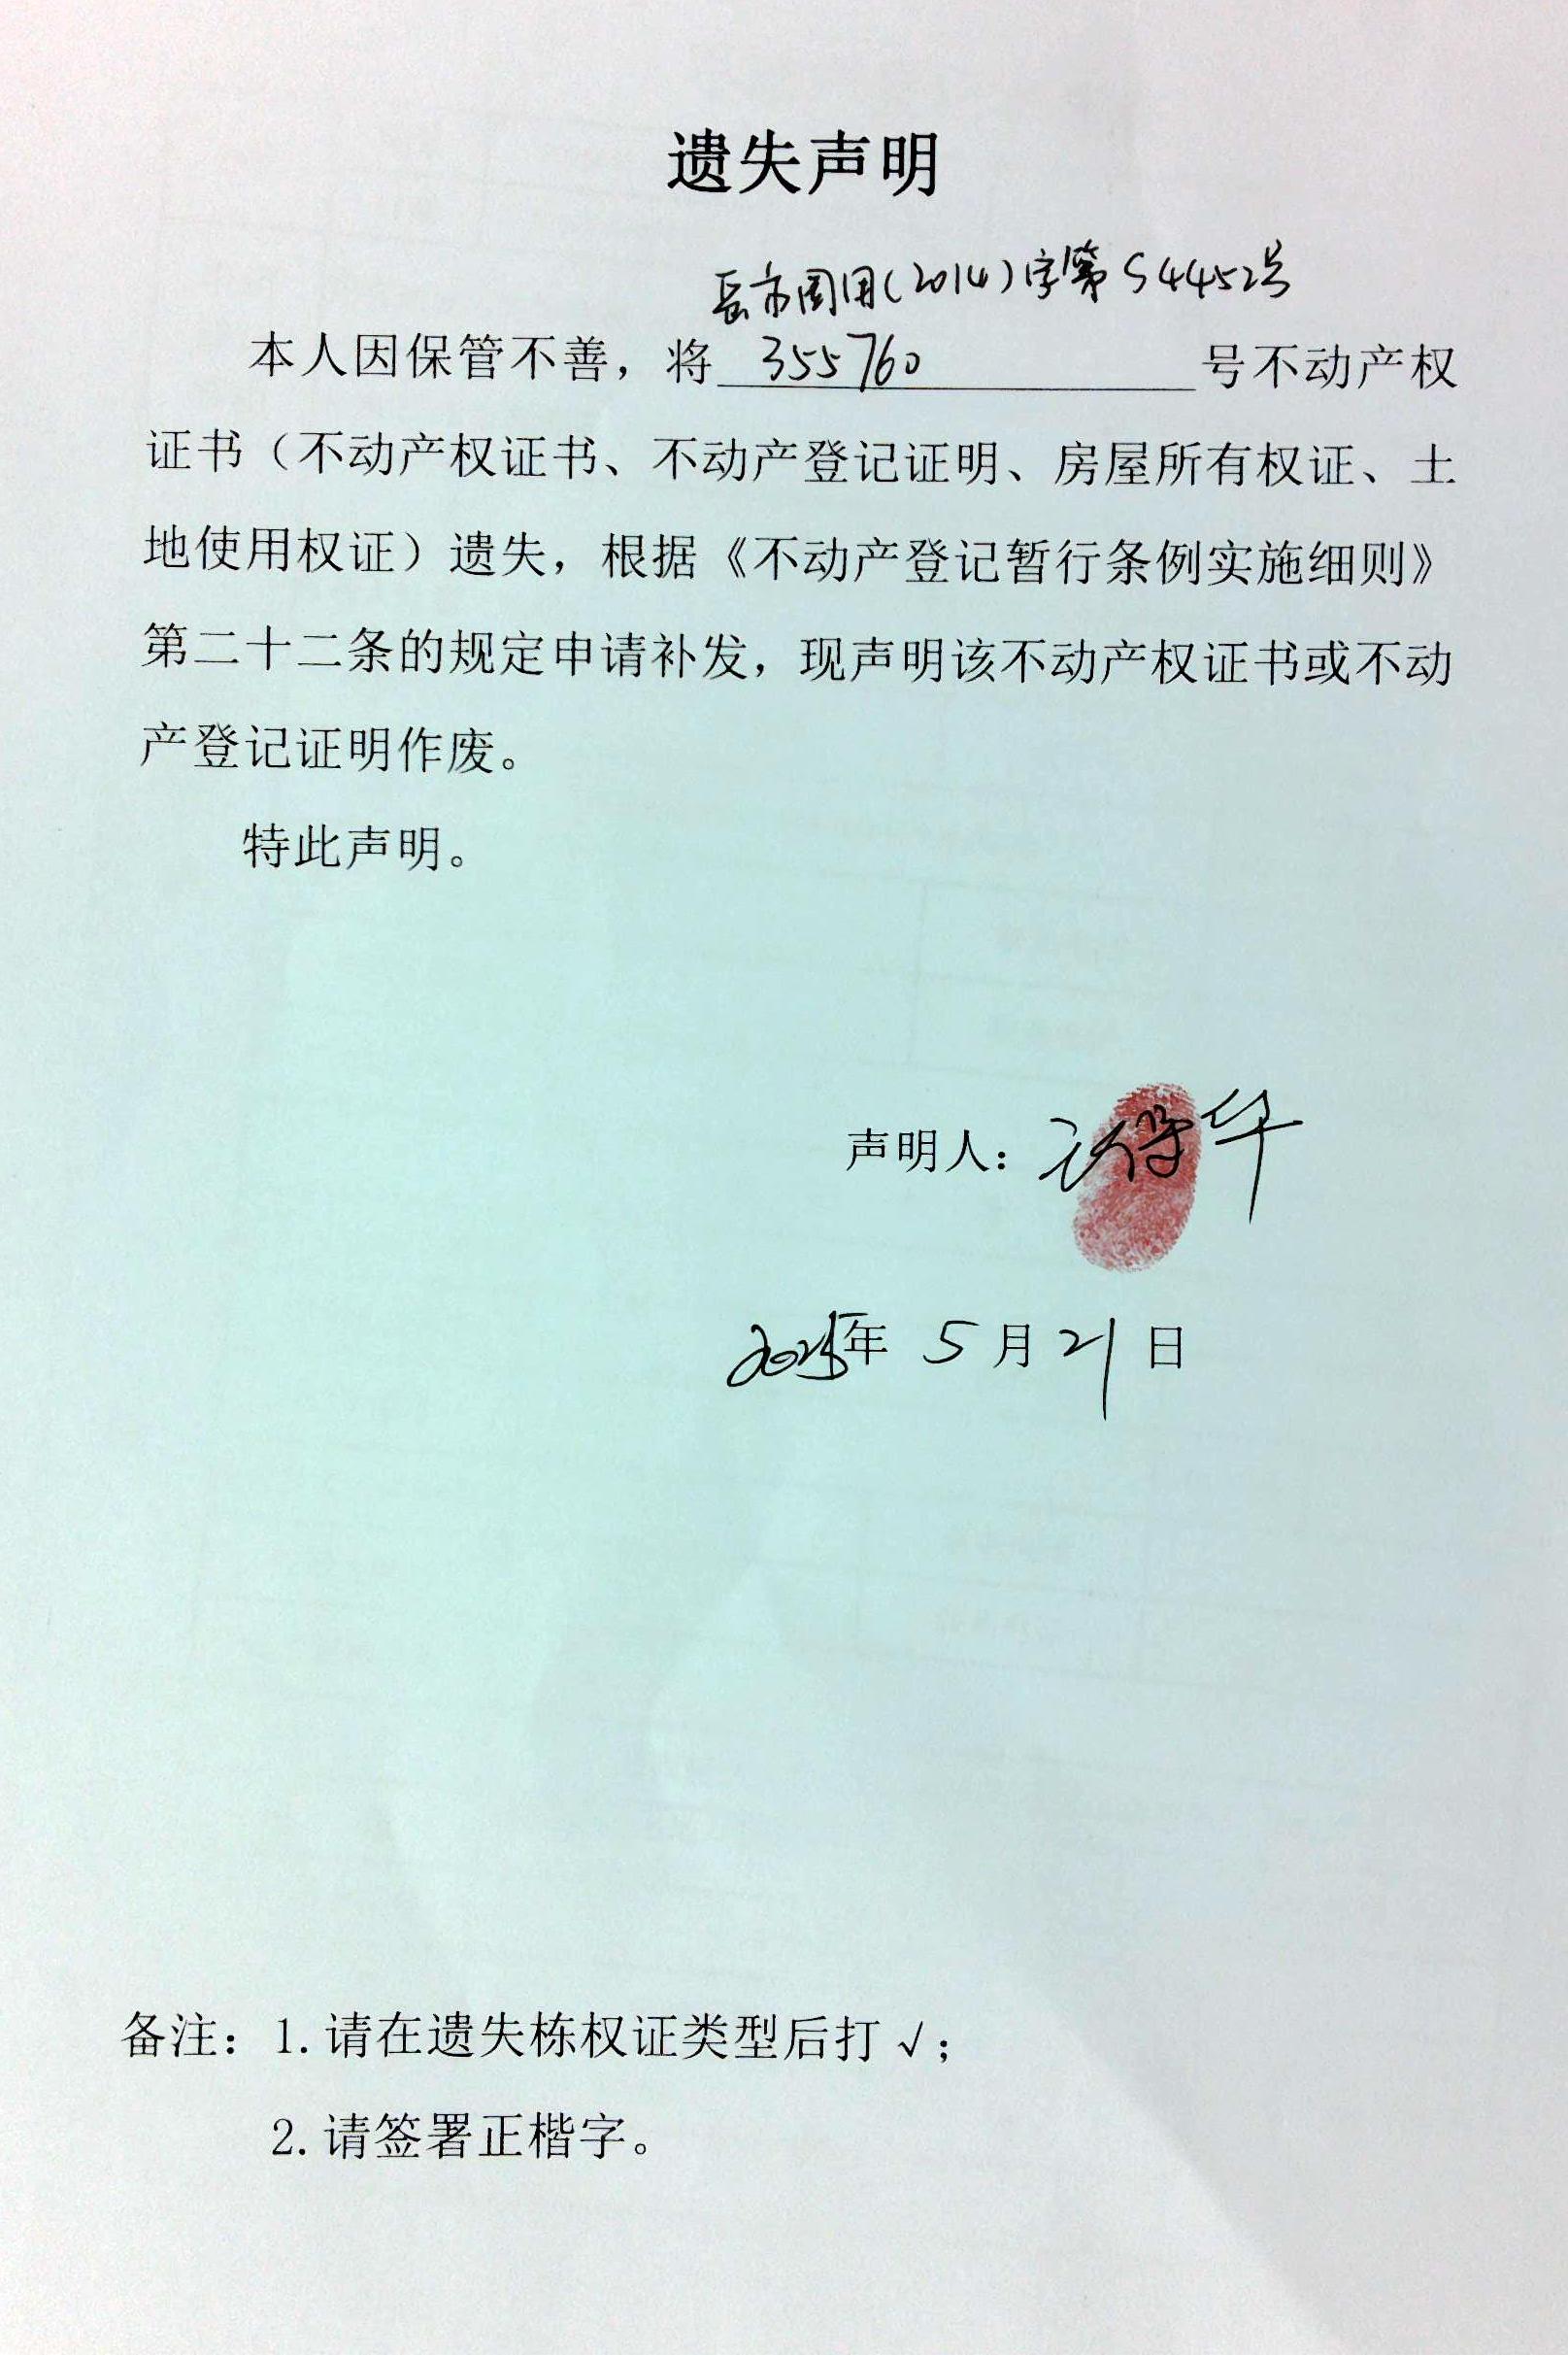 遗失声明
岳市国用(2014)字第S4452号
本人因保管不善，将 355760 号不动产权
证书（不动产权证书、不动产登记证明、房屋所有权证、土
地使用权证）遗失，根据《不动产登记暂行条例实施细则》
第二十二条的规定申请补发，现声明该不动产权证书或不动
产登记证明作废。
特此声明。
声明人：
2025年 5月21日
备注：1.请在遗失栋权证类型后打√；
2.请签署正楷字。